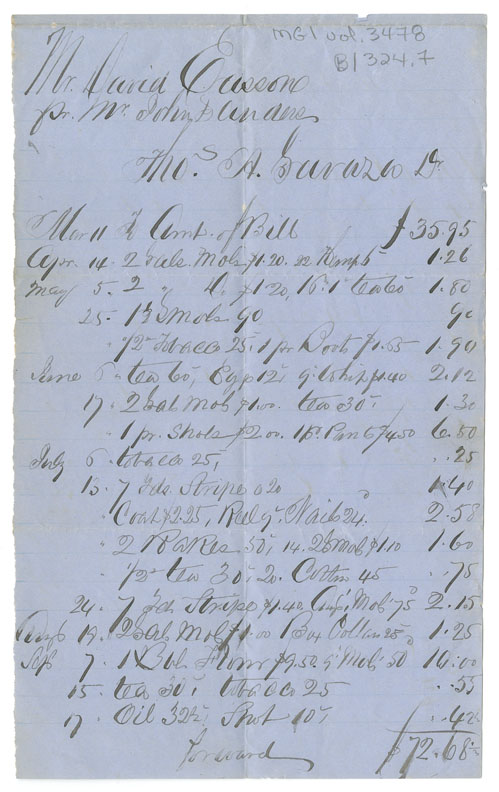 MG1 vol. 3478
B1324.7
Mr. David Easson
pr. Mr. John Flanders
Thos. A. Dr
Mar 11 To Amt. of Bill $35.95
Apr. 14. 2 Gals. Mols $1.20. 22 6 1.26
May 5. 2 " $1.20, tea 60 1.80
25. 1½ G Mols 90 90
" ½ lb tobacco 25. 1 pr Boots $1.65 1.90
June 6. tea 60, 12, $1.40 2.12
17. 2 Gal Mol $1.00. tea 30 1.30
" 1 pr. Shoes $2.00. 1 pr. Pants $4.50 6.50
July 6. tobacco 25, .25
15. 7 yds. Stripe @ 20 1.40
" Coat $2.25, Nails 24. 2.58
" 2 Rakes 50, 14. 2 G Mol $1.10 1.60
" ½ lb tea 30, 20. Cotton 45 .75
24. 7 yds Stripe $1.40, Mol 75 2.15
2 Gal Mol $1.00 Box 25 1.25
Sep 7. 1 Bbl Flour $9.50 Mol 50 10.00
15. tea 30, tobacco 25 .55
17. Oil 32, Shot 10 .42
forward $72.68